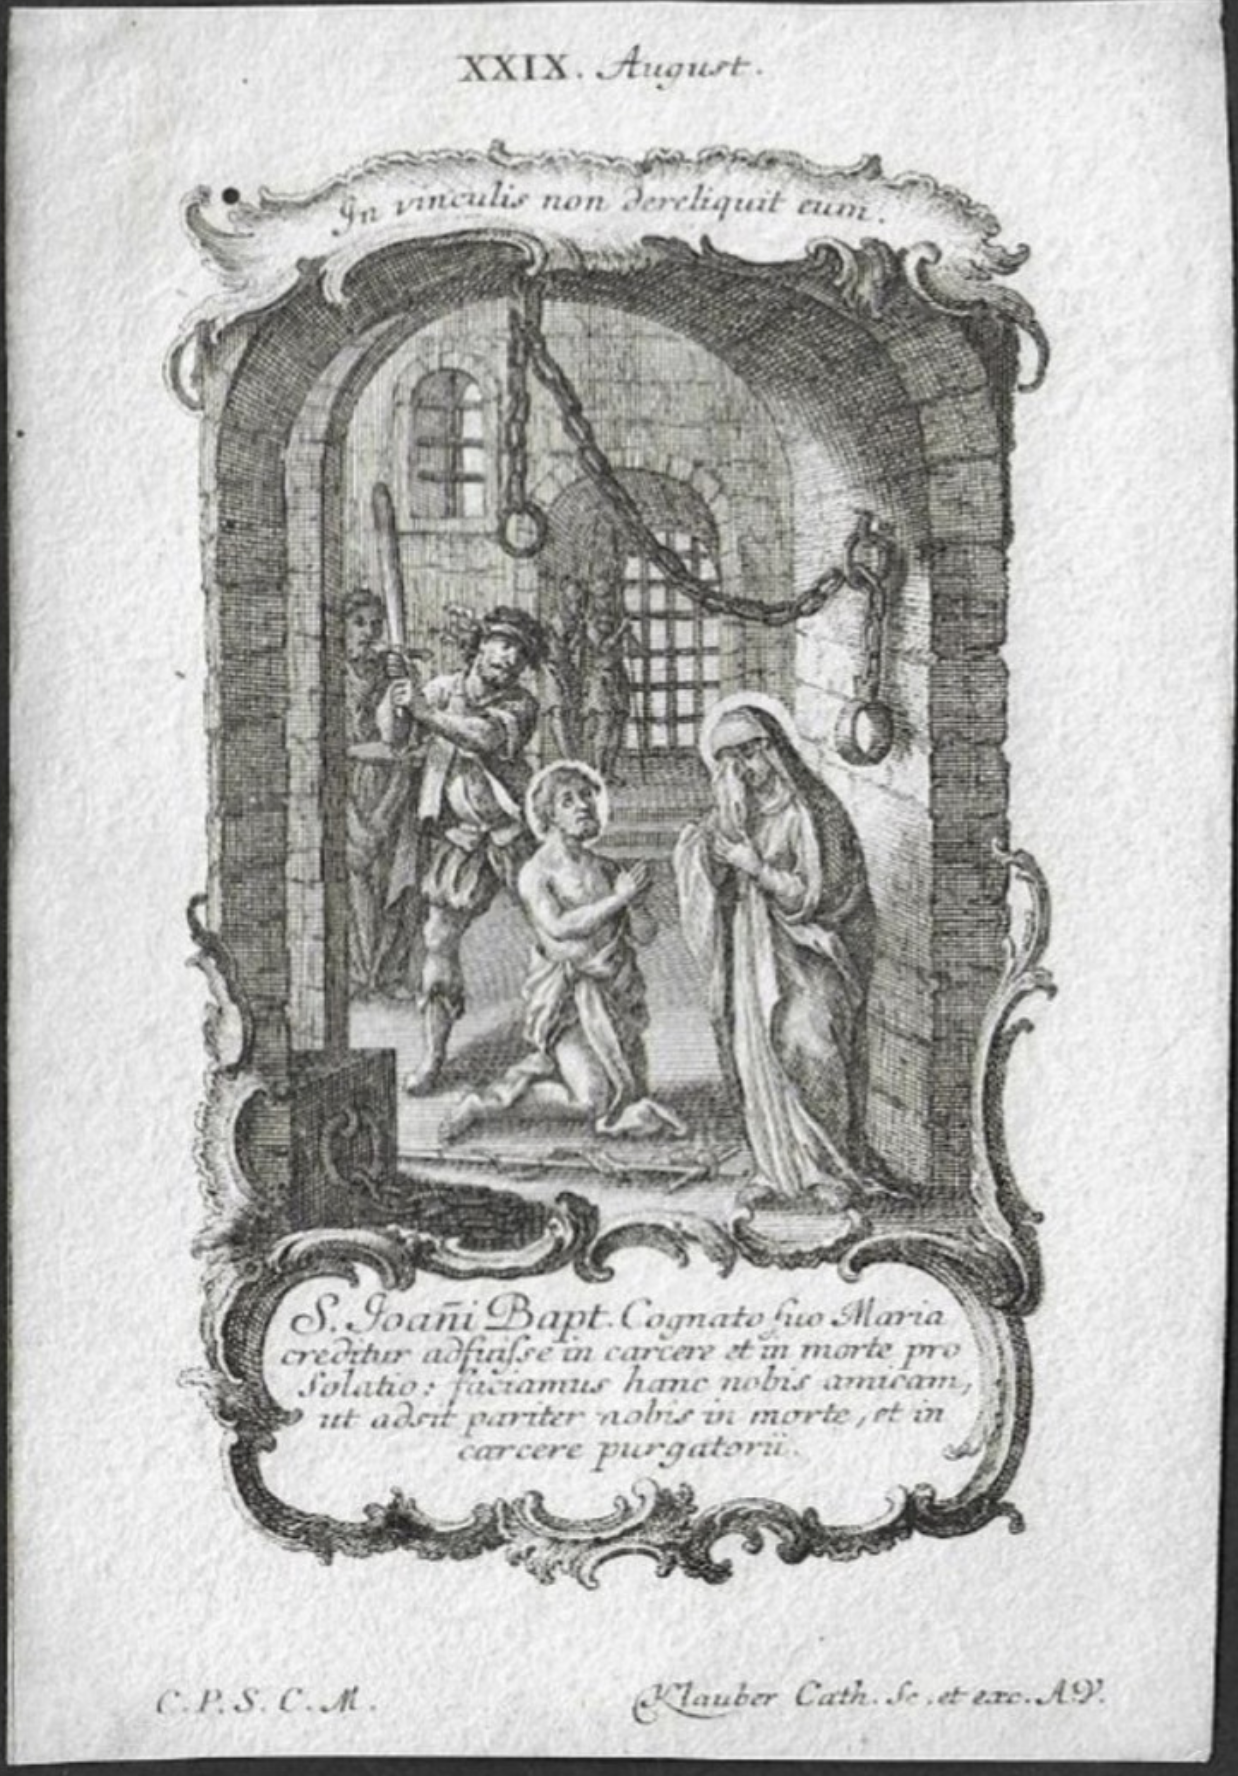 XXIX. August.
In vinculis non dereliquit eum.
S. Joan̄i Bapt. Cognato suo Maria
creditur adfuisse in carcere et in morte pro
solatio: faciamus hanc nobis amicam,
ut adsit pariter nobis in morte, et in
carcere purgatorii.
C. P. S. C. M.
Klauber Cath. Sc. et exc. A.V.